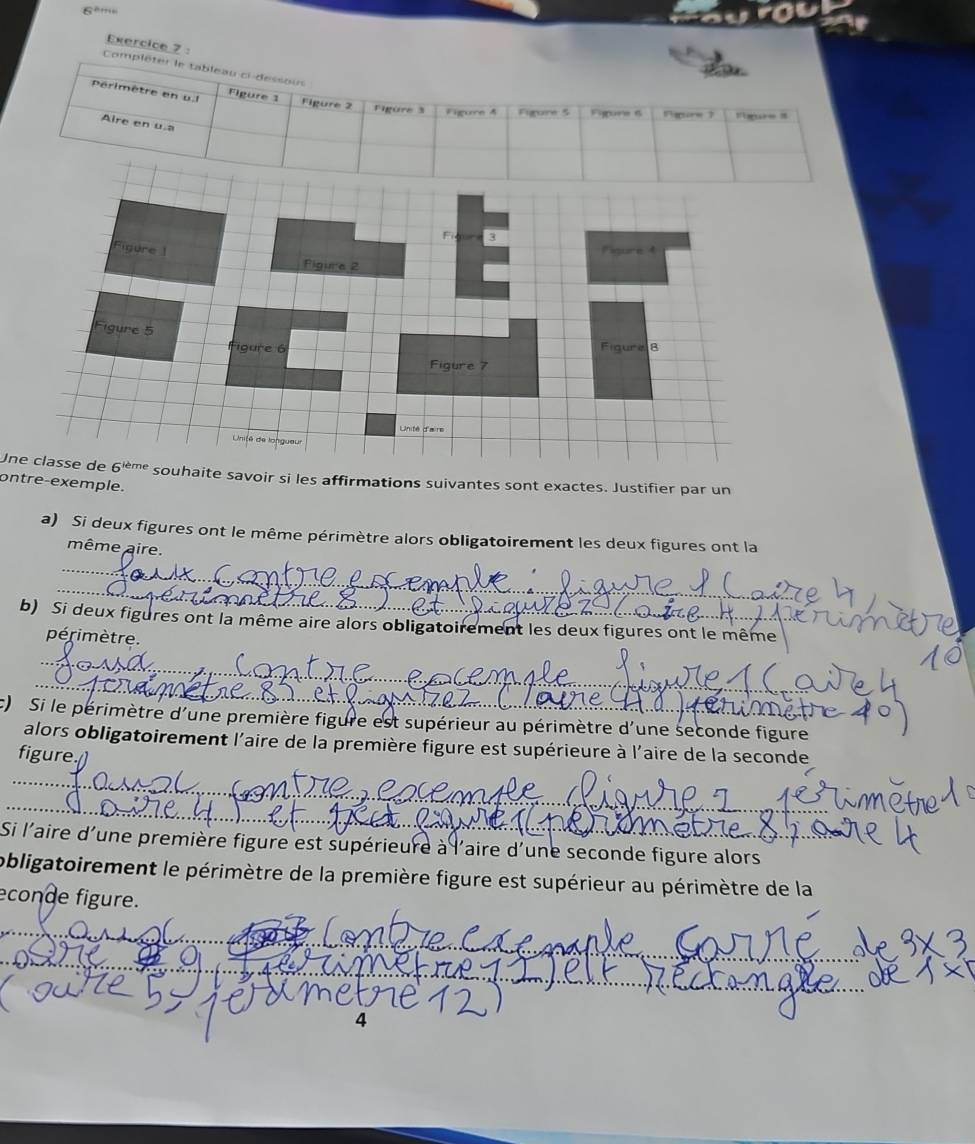 6ème
Exercice 7 :
Compléter le tableau ci-dessous :
Figure 1 Figure 2 Figure 3 Figure 4 Figure 5 Figure 6 Figure 7 Figure 8
Périmètre en u.l
Aire en u.a
Figure 1
Figure 2
Figure 3
Figure 4
Figure 5
Figure 6
Figure 7
Figure 8
Unité de longueur
Unité d'aire
Une classe de 6ième souhaite savoir si les affirmations suivantes sont exactes. Justifier par un
ontre-exemple.
a) Si deux figures ont le même périmètre alors obligatoirement les deux figures ont la
même aire.
faux contre exemple : figure 1 (aire 4,
périmètre 8) et figure 2 (aire 4, périmètre
10
b) Si deux figures ont la même aire alors obligatoirement les deux figures ont le même
périmètre.
contre excemple figure 1 (aire 4
périmètre 8) et figure 2 (aire 4 périmètre 10)
c) Si le périmètre d'une première figure est supérieur au périmètre d'une seconde figure
alors obligatoirement l'aire de la première figure est supérieure à l'aire de la seconde
figure.
contre excemple figure 2 périmètre 10
aire 4) et figure 1 (périmètre 8, aire 4
Si l'aire d'une première figure est supérieure à l'aire d'une seconde figure alors
obligatoirement le périmètre de la première figure est supérieur au périmètre de la
econde figure.
contre exemple carré de 3x3
aire 9, périmètre 12) et rectangle de 1x5
(aire 5, périmètre 12)
4